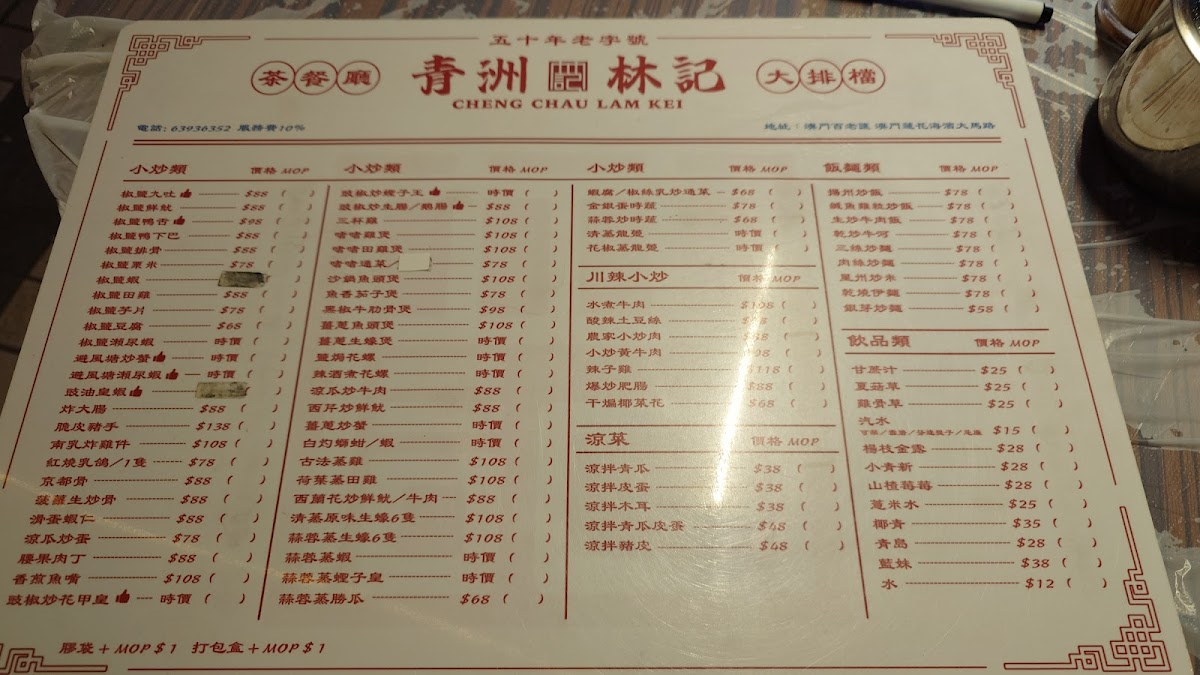 五十年老字號
茶餐廳 青洲 林記 大排檔
CHENG CHAU LAM KEI
電話: 63936352 服務費10%
地址：澳門百老匯 澳門蓮花海濱大馬路
小炒類 價格 MOP
椒鹽九吐 $88 ( )
椒鹽鮮魷 $88 ( )
椒鹽鴨舌 $98 ( )
椒鹽鴨下巴 $88 ( )
椒鹽排骨 $88 ( )
椒鹽粟米 $78 ( )
椒鹽蝦
椒鹽田雞 $88 ( )
椒鹽芋片 $78 ( )
椒鹽豆腐 $68 ( )
椒鹽瀨尿蝦 時價 ( )
避風塘炒蟹 時價 ( )
避風塘瀨尿蝦 時價 ( )
豉油皇蝦 ( )
炸大腸 $88 ( )
脆皮豬手 $138 ( )
南乳炸雞件 $108 ( )
紅燒乳鴿/1隻 $78 ( )
京都骨 $88 ( )
菠蘿生炒骨 $88 ( )
滑蛋蝦仁 $88 ( )
涼瓜炒蛋 $78 ( )
腰果肉丁 $88 ( )
香煎魚嘴 $108 ( )
豉椒炒花甲皇 時價 ( )
小炒類 價格 MOP
豉椒炒蟶子王 時價 ( )
豉椒炒生腸/鵝腸 $88 ( )
三杯雞 $108 ( )
啫啫雞煲 $108 ( )
啫啫田雞煲 $108 ( )
啫啫通菜/ $78 ( )
沙鍋魚頭煲 $108 ( )
魚香茄子煲 $78 ( )
黑椒牛肋骨煲 $98 ( )
薑蔥魚頭煲 $108 ( )
薑蔥生蠔煲 $108 ( )
鹽焗花螺 時價 ( )
辣酒煮花螺 時價 ( )
涼瓜炒牛肉 $88 ( )
西芹炒鮮魷 $88 ( )
薑蔥炒蟹 時價 ( )
白灼螄蚶/蝦 時價 ( )
古法蒸雞 $108 ( )
荷葉蒸田雞 $108 ( )
西蘭花炒鮮魷/牛肉 $88 ( )
清蒸原味生蠔6隻 $108 ( )
蒜蓉蒸生蠔6隻 $108 ( )
蒜蓉蒸蝦 時價 ( )
蒜蓉蒸蟶子皇 時價 ( )
蒜蓉蒸勝瓜 $68 ( )
小炒類 價格 MOP
蝦腐/椒絲乳炒通菜 $68 ( )
金銀蛋時蔬 $78 ( )
蒜蓉炒時蔬 $68 ( )
清蒸龍躉 時價 ( )
花椒蒸龍躉 時價 ( )
川辣小炒 價格 MOP
水煮牛肉 $108 ( )
酸辣土豆絲 ( )
農家小炒肉 ( )
小炒黃牛肉 ( )
辣子雞 $118 ( )
爆炒肥腸 $88 ( )
干煸椰菜花 $68 ( )
涼菜 價格 MOP
涼拌青瓜 $38 ( )
涼拌皮蛋 $38 ( )
涼拌木耳 $38 ( )
涼拌青瓜皮蛋 $48 ( )
涼拌豬皮 $48 ( )
飯麵類 價格 MOP
揚州炒飯 $78 ( )
鹹魚雞粒炒飯 $78 ( )
生炒牛肉飯 $78 ( )
乾炒牛河 $78 ( )
三絲炒麵 $78 ( )
肉絲炒麵 $78 ( )
星州炒米 $78 ( )
乾燒伊麵 $78 ( )
銀芽炒麵 $58 ( )
飲品類 價格 MOP
甘蔗汁 $25 ( )
夏菇草 $25 ( )
雞骨草 $25 ( )
汽水 $15 ( )
楊枝金露 $28 ( )
小青新 $28 ( )
山楂莓莓 $28 ( )
薏米水 $25 ( )
椰青 $35 ( )
青島 $28 ( )
藍妹 $38 ( )
水 $12 ( )
膠袋＋MOP$1 打包盒＋MOP$1